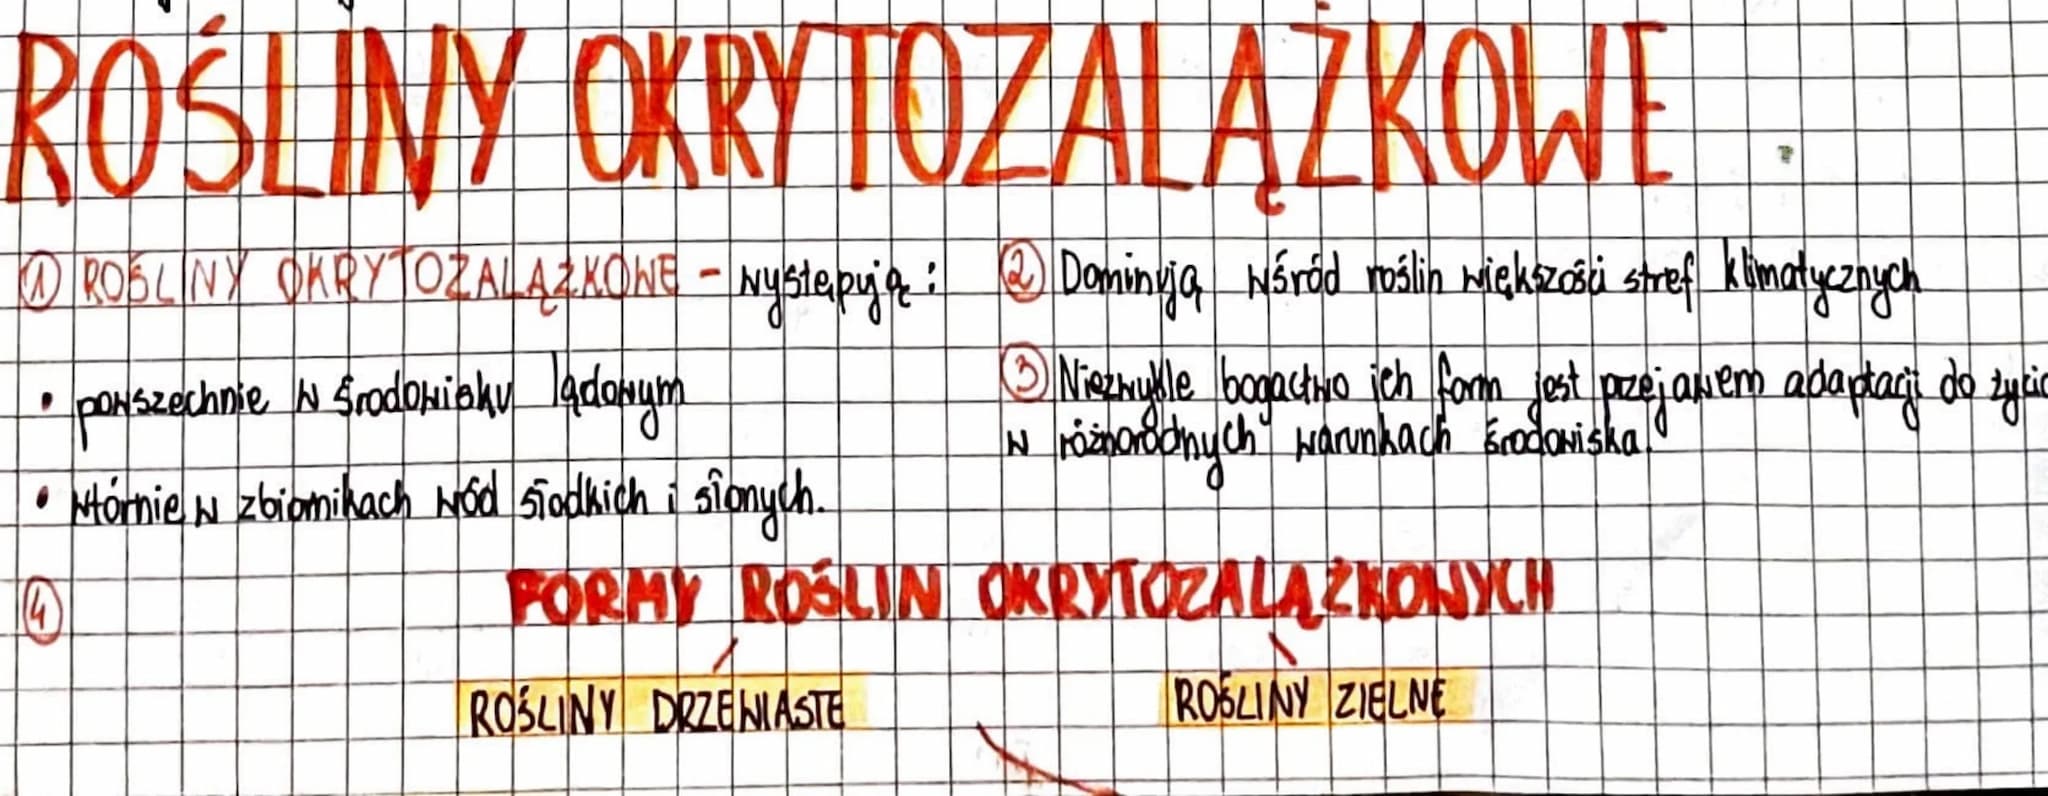 ROŚLINY OKRYTOZALĄŻKOWE
① ROŚLINY OKRYTOZALĄŻKOWE - występują:
• powszechnie w środowisku lądowym
• wtórnie w zbiornikach wód słodkich i słonych.
② Dominują wśród roślin większości stref klimatycznych
③ Niezwykle bogactwo ich form jest przejawem adaptacji do życia
w różnorodnych warunkach środowiska.
④ FORMY ROŚLIN OKRYTOZALĄŻKOWYCH
ROŚLINY DRZEWIASTE
ROŚLINY ZIELNE